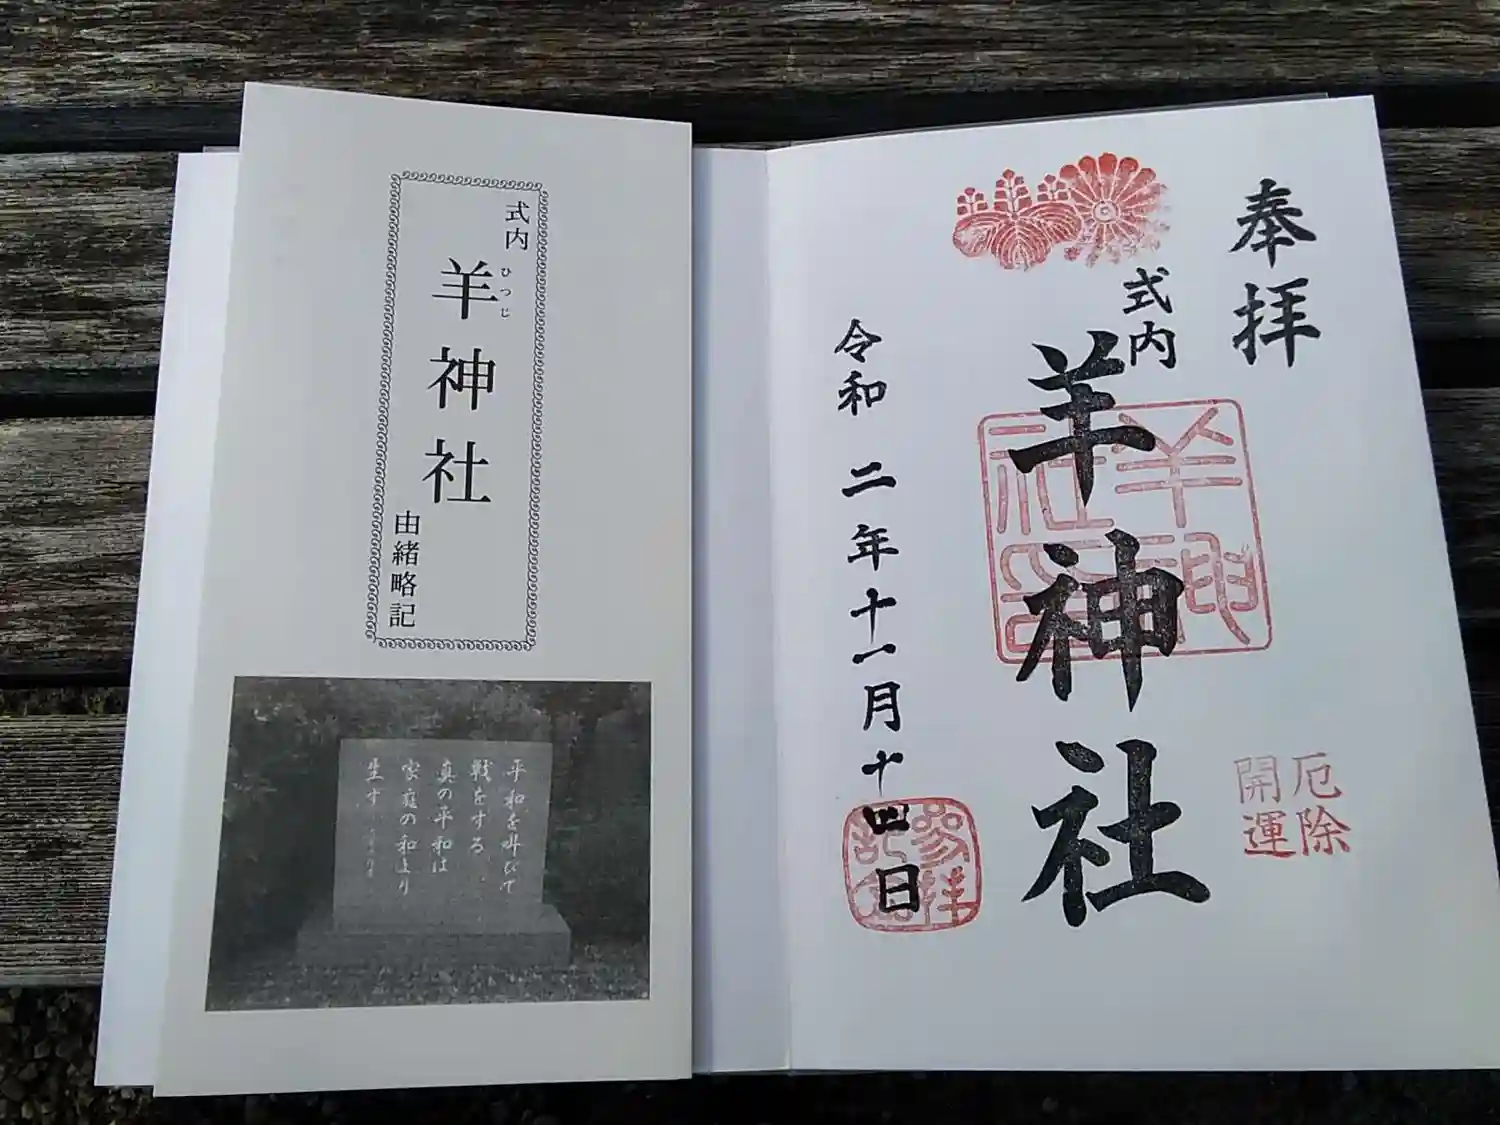 式内
羊神社
ひつじ
由緒略記
平和を叫びて
戦をする
真の平和は
家庭の和より
生す
奉拝
式内
羊神社
令和二年十一月十四日
羊神社
参拝記念
厄除
開運